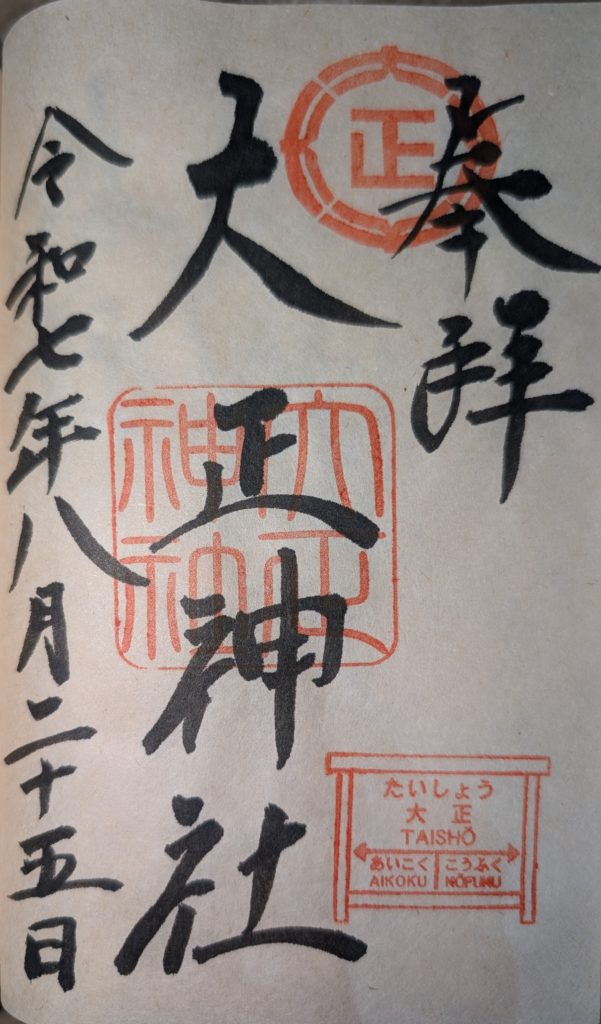 奉拝
正
大正神社
大正
神社
令和七年八月二十五日
たいしょう
大正
TAISHŌ
あいこく こうふく
AIKOKU KŌFUKU